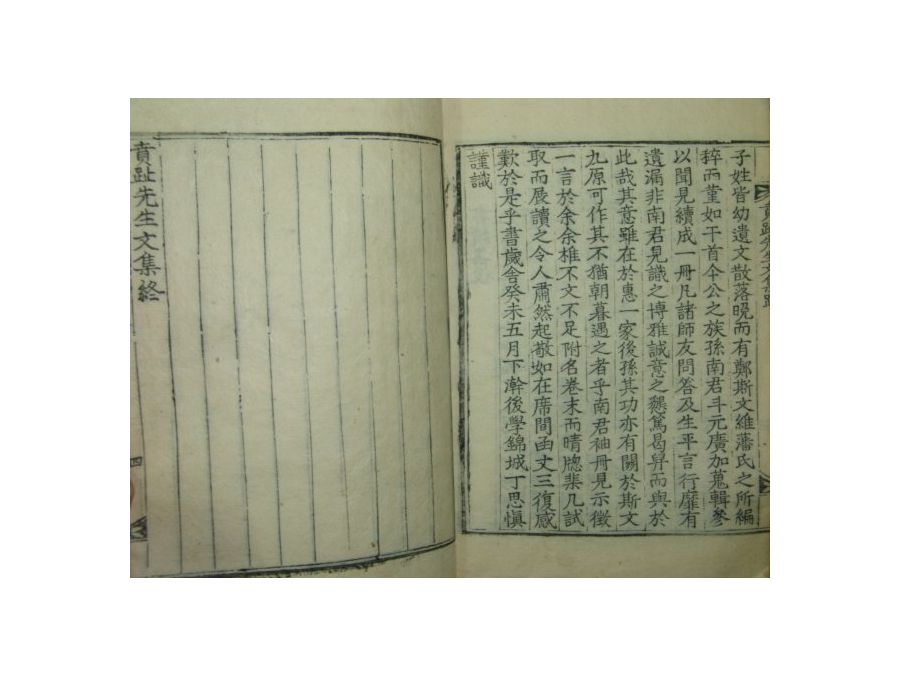 子姓皆幼遺文散落晚而有鄭斯文維藩氏之所編
稡而菫如干首仐公之族孫南君斗元廣加蒐輯參
以聞見續成一冊凡諸師友問答及生平言行靡有
遺漏非南君見識之博雅誠意之懇篤曷㫒而與於
此哉其意雖在於惠一家後孫其功亦有關於斯文
九原可作其不猶朝暮遇之者乎南君袖冊見示徵
一言於余余椎不文不足附名卷末而晴牕棐几試
取而展讀之令人肅然起敬如在席間函丈三復感
歎於是乎書歲舍癸未五月下澣後學錦城丁思愼
謹識
賁趾先生文集終